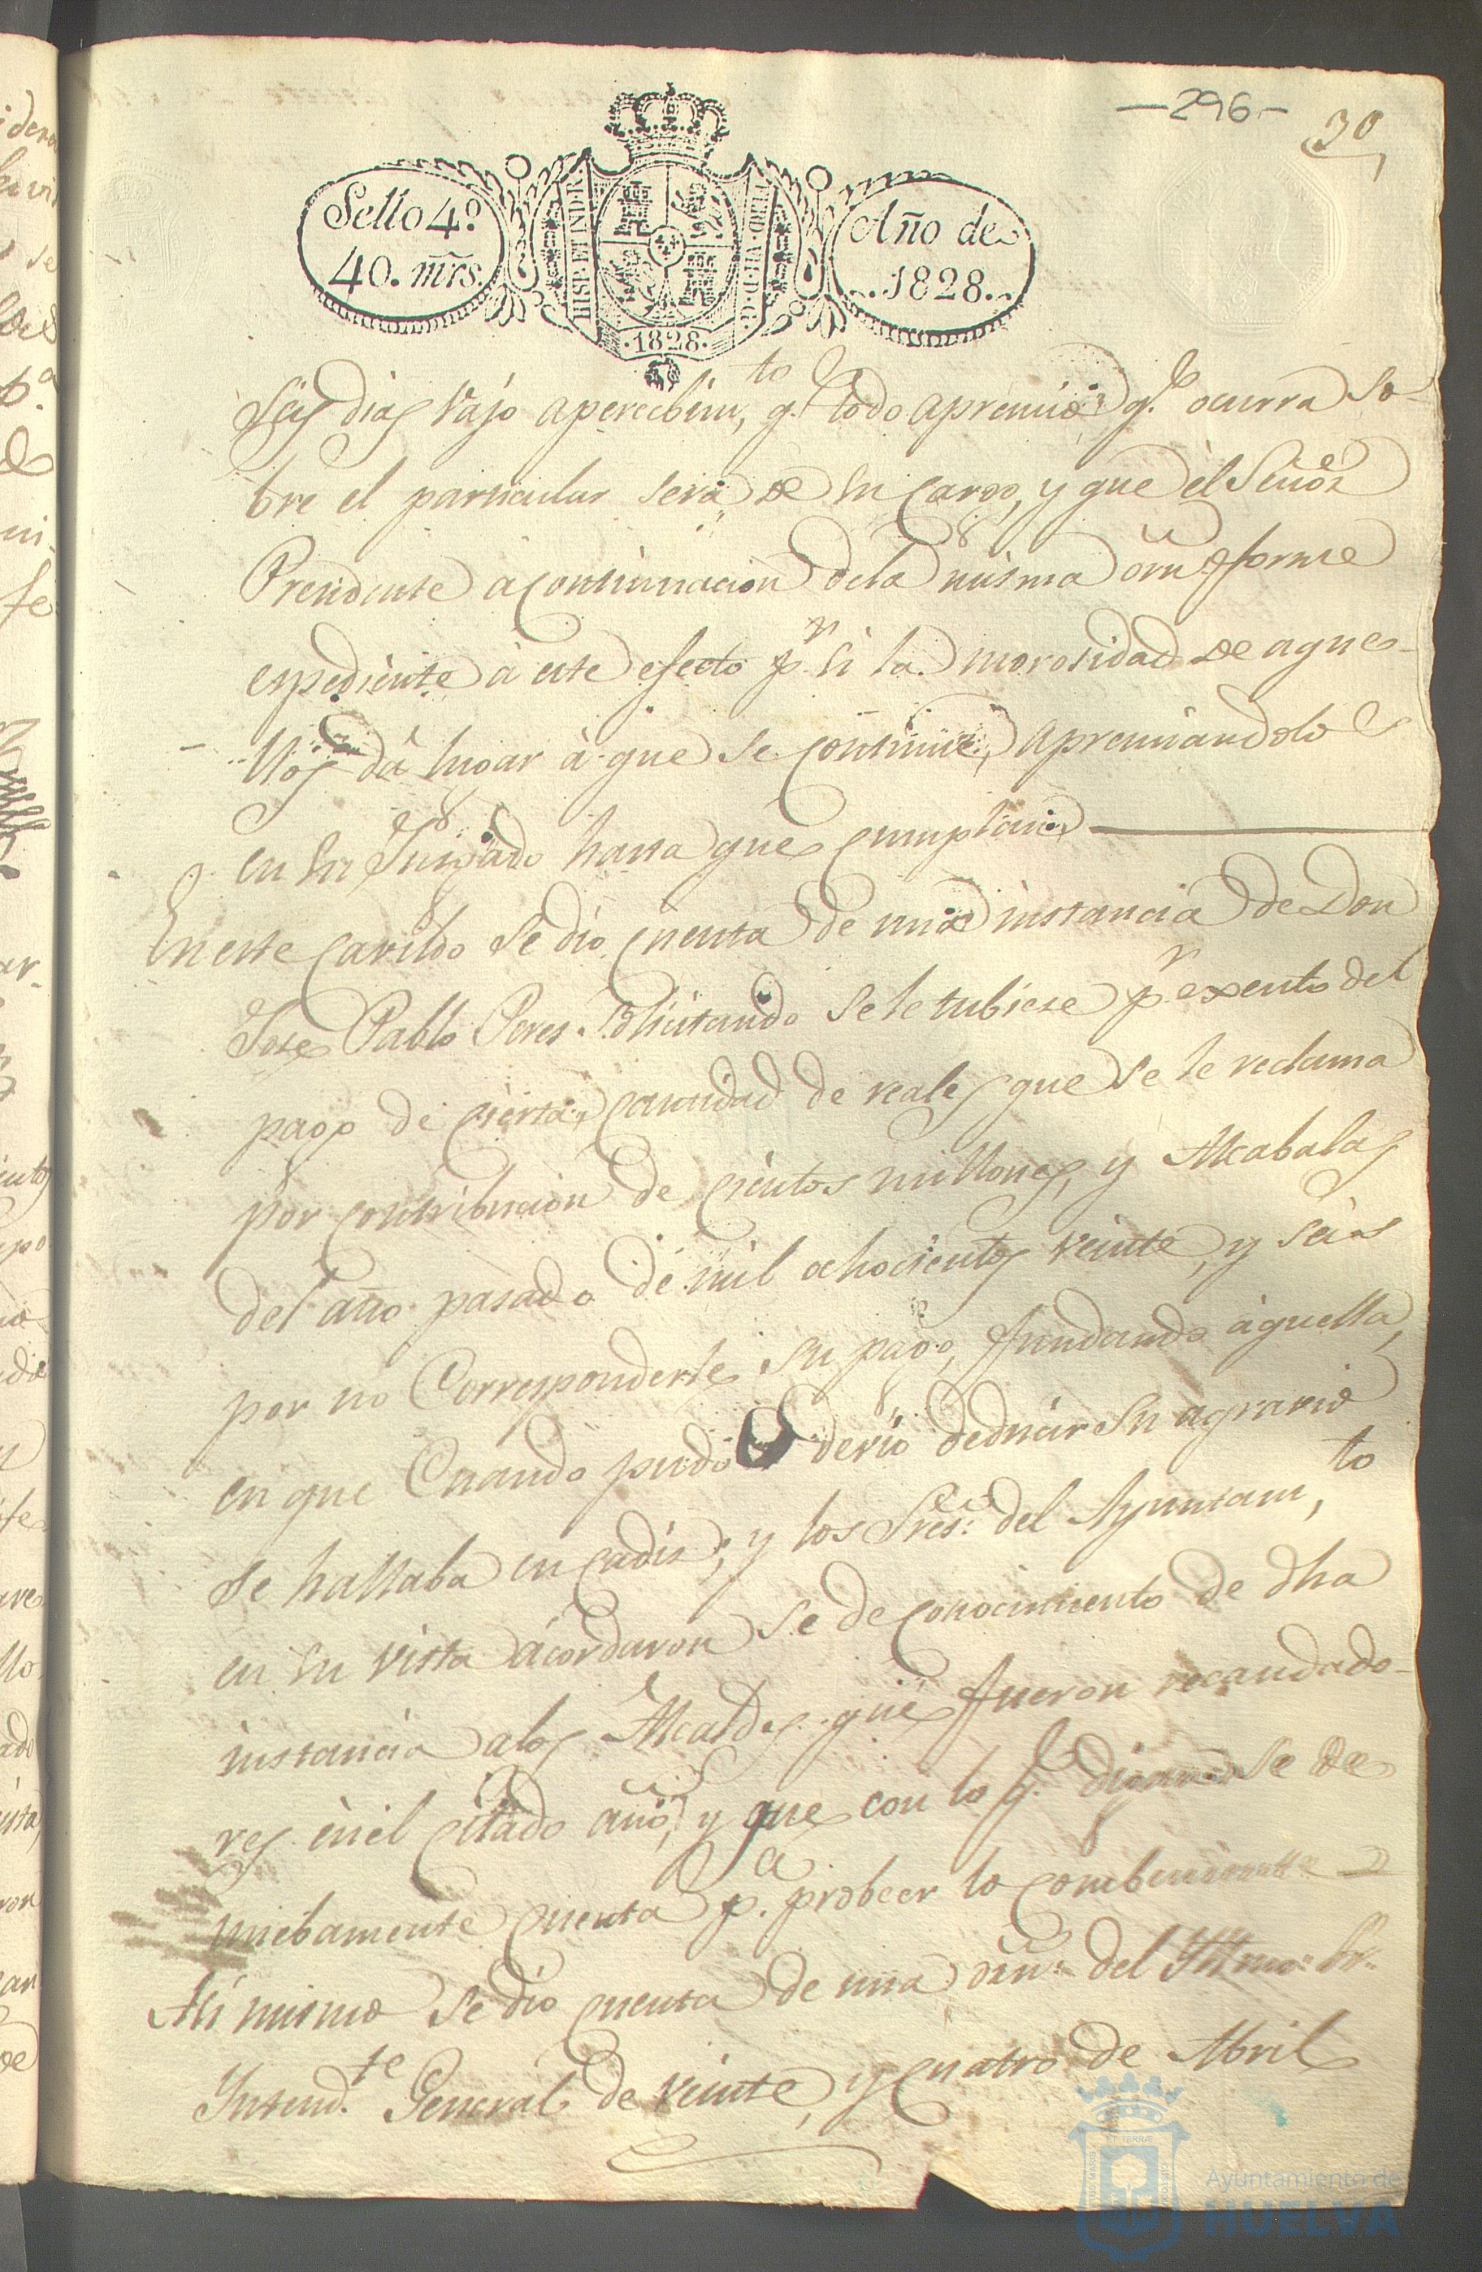 -296-
30
Sello 4º
40. mrs.
HISP. ET IND. R.
FERD. VII. D. G.
1828.
Año de
1828.
seis dias vajo apercibim,to q.e todo apremio q.e ocurra so-
bre el particular será de su cargo, y que èl Señor
Precidente à continuacion dela misma orn forme
espediente à este efecto p.r si la morosidad de aque-
llos dá lugar à que se continue, apremiandolos
en su Juzgado hasta que cumplan
En este Cavildo se dió cuenta de una instancia de Don
Jose Pablo Peres solicitando se le tubiese p.r exento del
pago de cierta cantidad de reales que se le reclama
por contribucion de cientos millones, y Alcabalas
del año pasado de mil ochocientos veinte, y seis
por no Corresponderle su pago, fundando àquella,
en que Cuando pudo y devió deducir su agravio
se hallaba en Cadis; y los Sres. del Ayuntam,to
en su vista acordaron se de conocimiento de dha
instancia alos Alcaldes que fueron recaudado-
res en el citado año, y que con lo q.e digan se de
nuebamente cuenta p.a probeer lo combeniente
Asi mismo se dió cuenta de una orn. del Yllmo. Sr.
Intend.te General de veinte, y cuatro de Abril
Ayuntamiento de
HUELVA